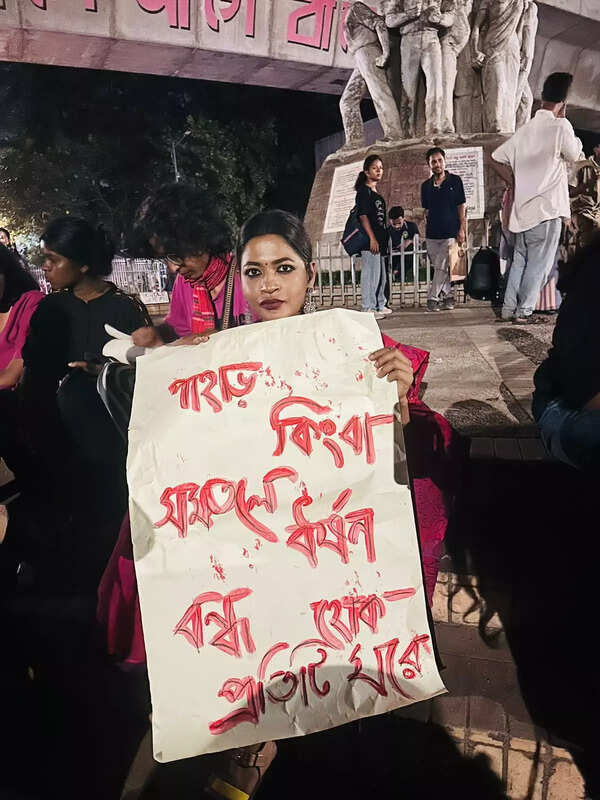 আগে
পাহাড়
কিংবা
সমতলে
ধর্ষন
বন্ধ হোক
প্রতিটি ঘরে